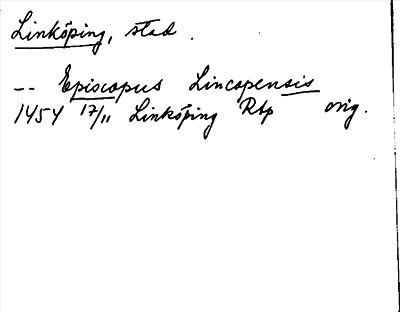 Linköping, stad.
-- Episcopus Lincopensis
1454 17/11 Linköping Rbp orig.